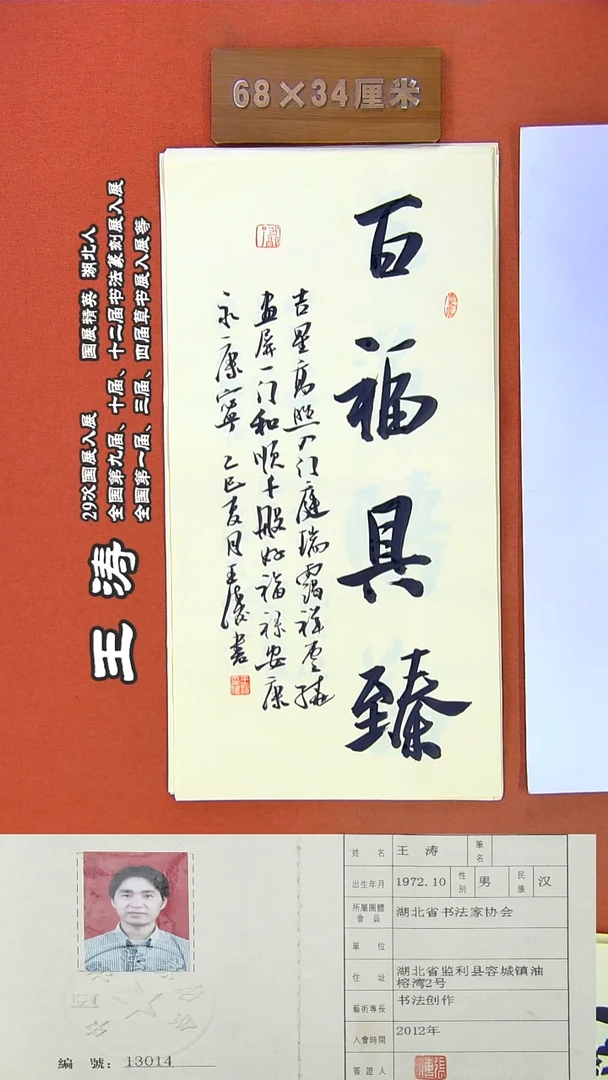 68×34厘米
百福具臻
吉星高照 门庭瑞霭祥云绕
画屏一门和顺千般好福禄安康
永康宁 乙巳夏月王涛书
王涛
29次国展入展 国展精英 湖北人
全国第九届、十届、十二届书法篆刻展入展
全国第一届、三届、四届草书展入展等
姓名 王涛 筆名
出生年月 1972.10 性别 男 民族 汉
所屬團體會員 湖北省书法家协会
單位
住址 湖北省监利县容城镇油
榕湾2号
藝術專長 书法创作
入會時間 2012年
簽證人
編號: 13014